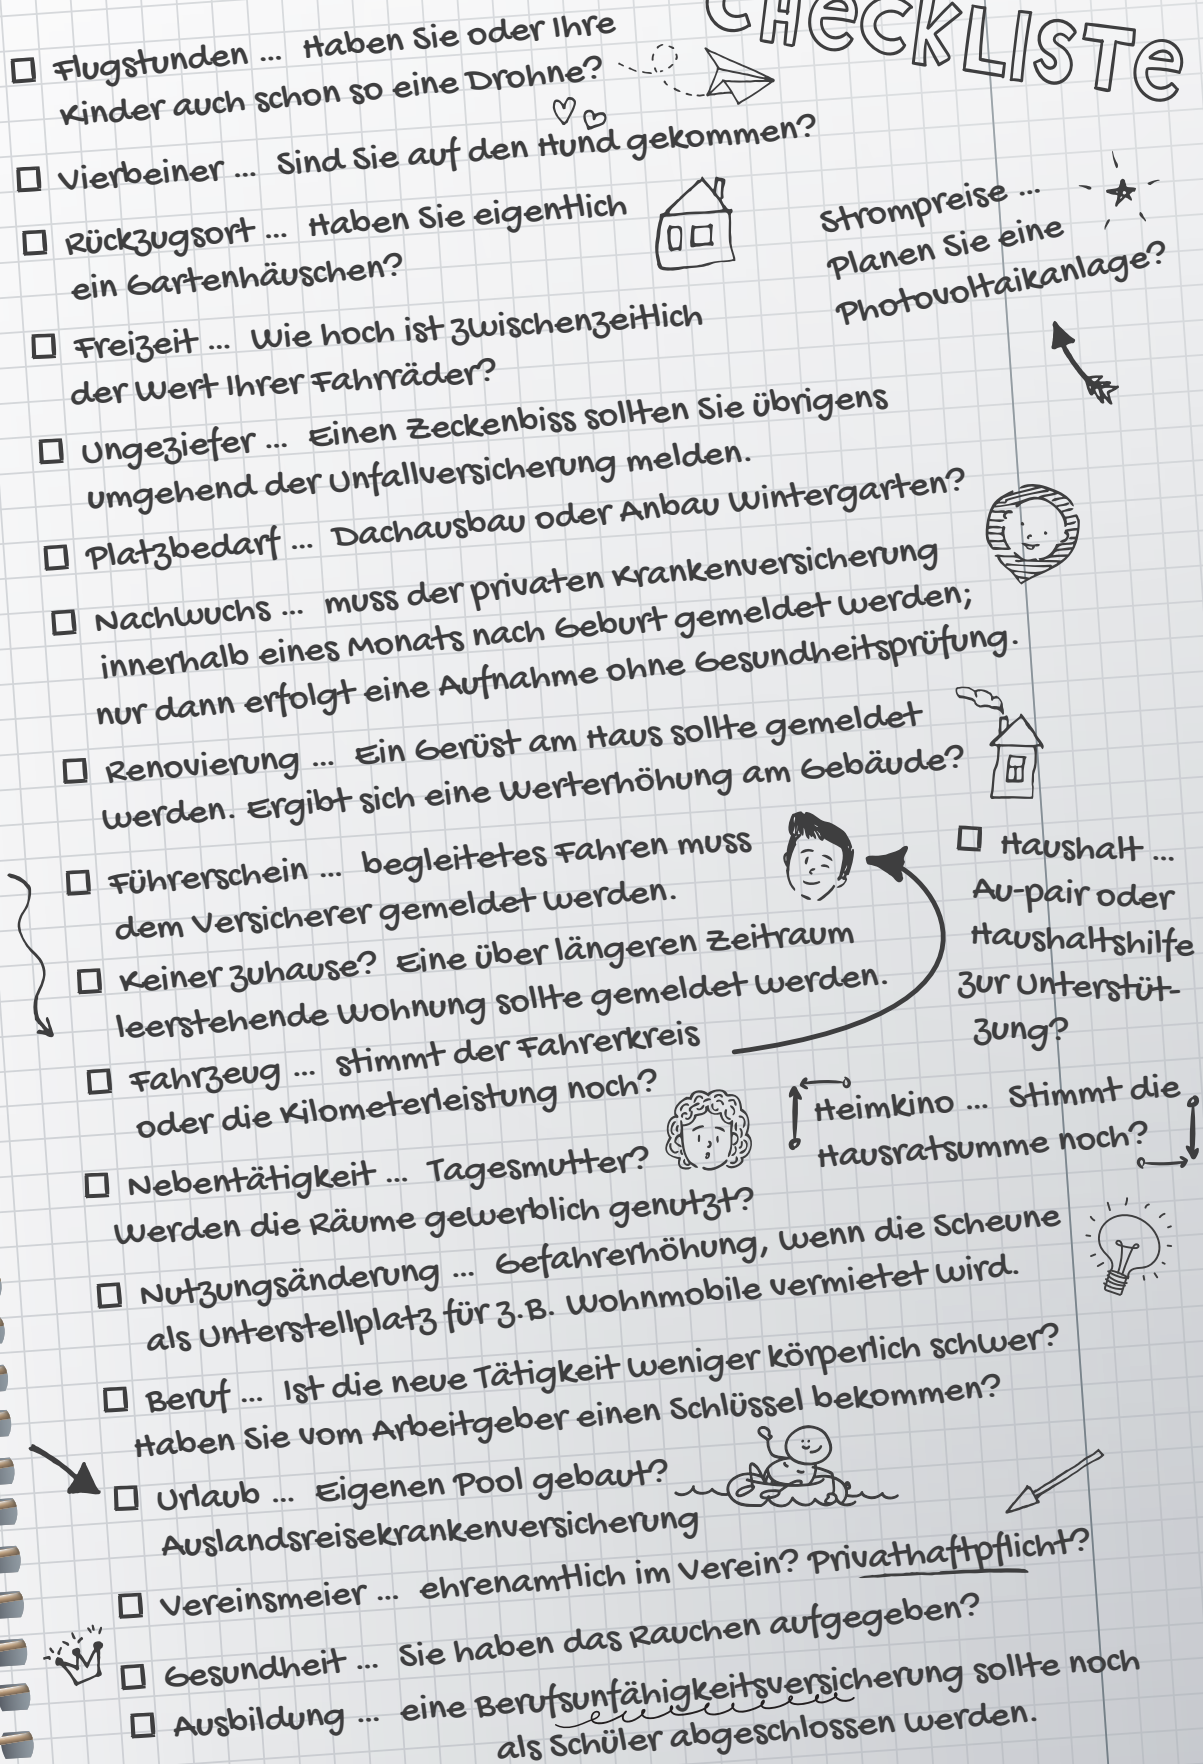 CHECKLISTE
Flugstunden ... Haben Sie oder Ihre
Kinder auch schon so eine Drohne?
Vierbeiner ... Sind Sie auf den Hund gekommen?
Rückzugsort ... Haben Sie eigentlich
ein Gartenhäuschen?
Strompreise ...
Planen Sie eine
Photovoltaikanlage?
Freizeit ... Wie hoch ist zwischenzeitlich
der Wert Ihrer Fahrräder?
Ungeziefer ... Einen Zeckenbiss sollten Sie übrigens
umgehend der Unfallversicherung melden.
Platzbedarf ... Dachausbau oder Anbau Wintergarten?
Nachwuchs ... muss der privaten Krankenversicherung
innerhalb eines Monats nach Geburt gemeldet werden;
nur dann erfolgt eine Aufnahme ohne Gesundheitsprüfung.
Renovierung ... Ein Gerüst am Haus sollte gemeldet
werden. Ergibt sich eine Werterhöhung am Gebäude?
Führerschein ... begleitetes Fahren muss
dem Versicherer gemeldet werden.
Keiner zuhause? Eine über längeren Zeitraum
leerstehende Wohnung sollte gemeldet werden.
Haushalt ...
Au-pair oder
Haushaltshilfe
zur Unterstüt-
zung?
Fahrzeug ... stimmt der Fahrerkreis
oder die Kilometerleistung noch?
Heimkino ... Stimmt die
Hausratsumme noch?
Nebentätigkeit ... Tagesmutter?
Werden die Räume gewerblich genutzt?
Nutzungsänderung ... Gefahrerhöhung, wenn die Scheune
als Unterstellplatz für z.B. Wohnmobile vermietet wird.
Beruf ... Ist die neue Tätigkeit weniger körperlich schwer?
Haben Sie vom Arbeitgeber einen Schlüssel bekommen?
Urlaub ... Eigenen Pool gebaut?
Auslandsreisekrankenversicherung
Vereinsmeier ... ehrenamtlich im Verein? Privathaftpflicht?
Gesundheit ... Sie haben das Rauchen aufgegeben?
Ausbildung ... eine Berufsunfähigkeitsversicherung sollte noch
als Schüler abgeschlossen werden.